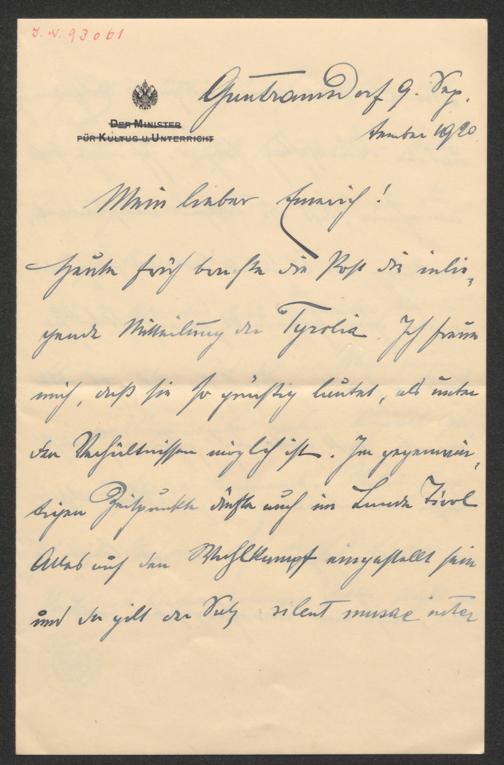 J. N. 93061
Guntramsdorf 9. Sep,
tember 1920
DER MINISTER
FÜR KULTUS U. UNTERRICHT
Mein lieber Emerich!
Heute früh brachte die Post die inlie,
gende Mitteilung der Tyrolia. Ich freue
mich, daß sie so günstig lautet, als unter
den Verhältnissen möglich ist. Im gegenwär,
tigen Zeitpunkte dürfte auch im Lande Tirol
Alles auf den Wahlkampf eingestellt sein
und da gilt der Satz silent musae inter